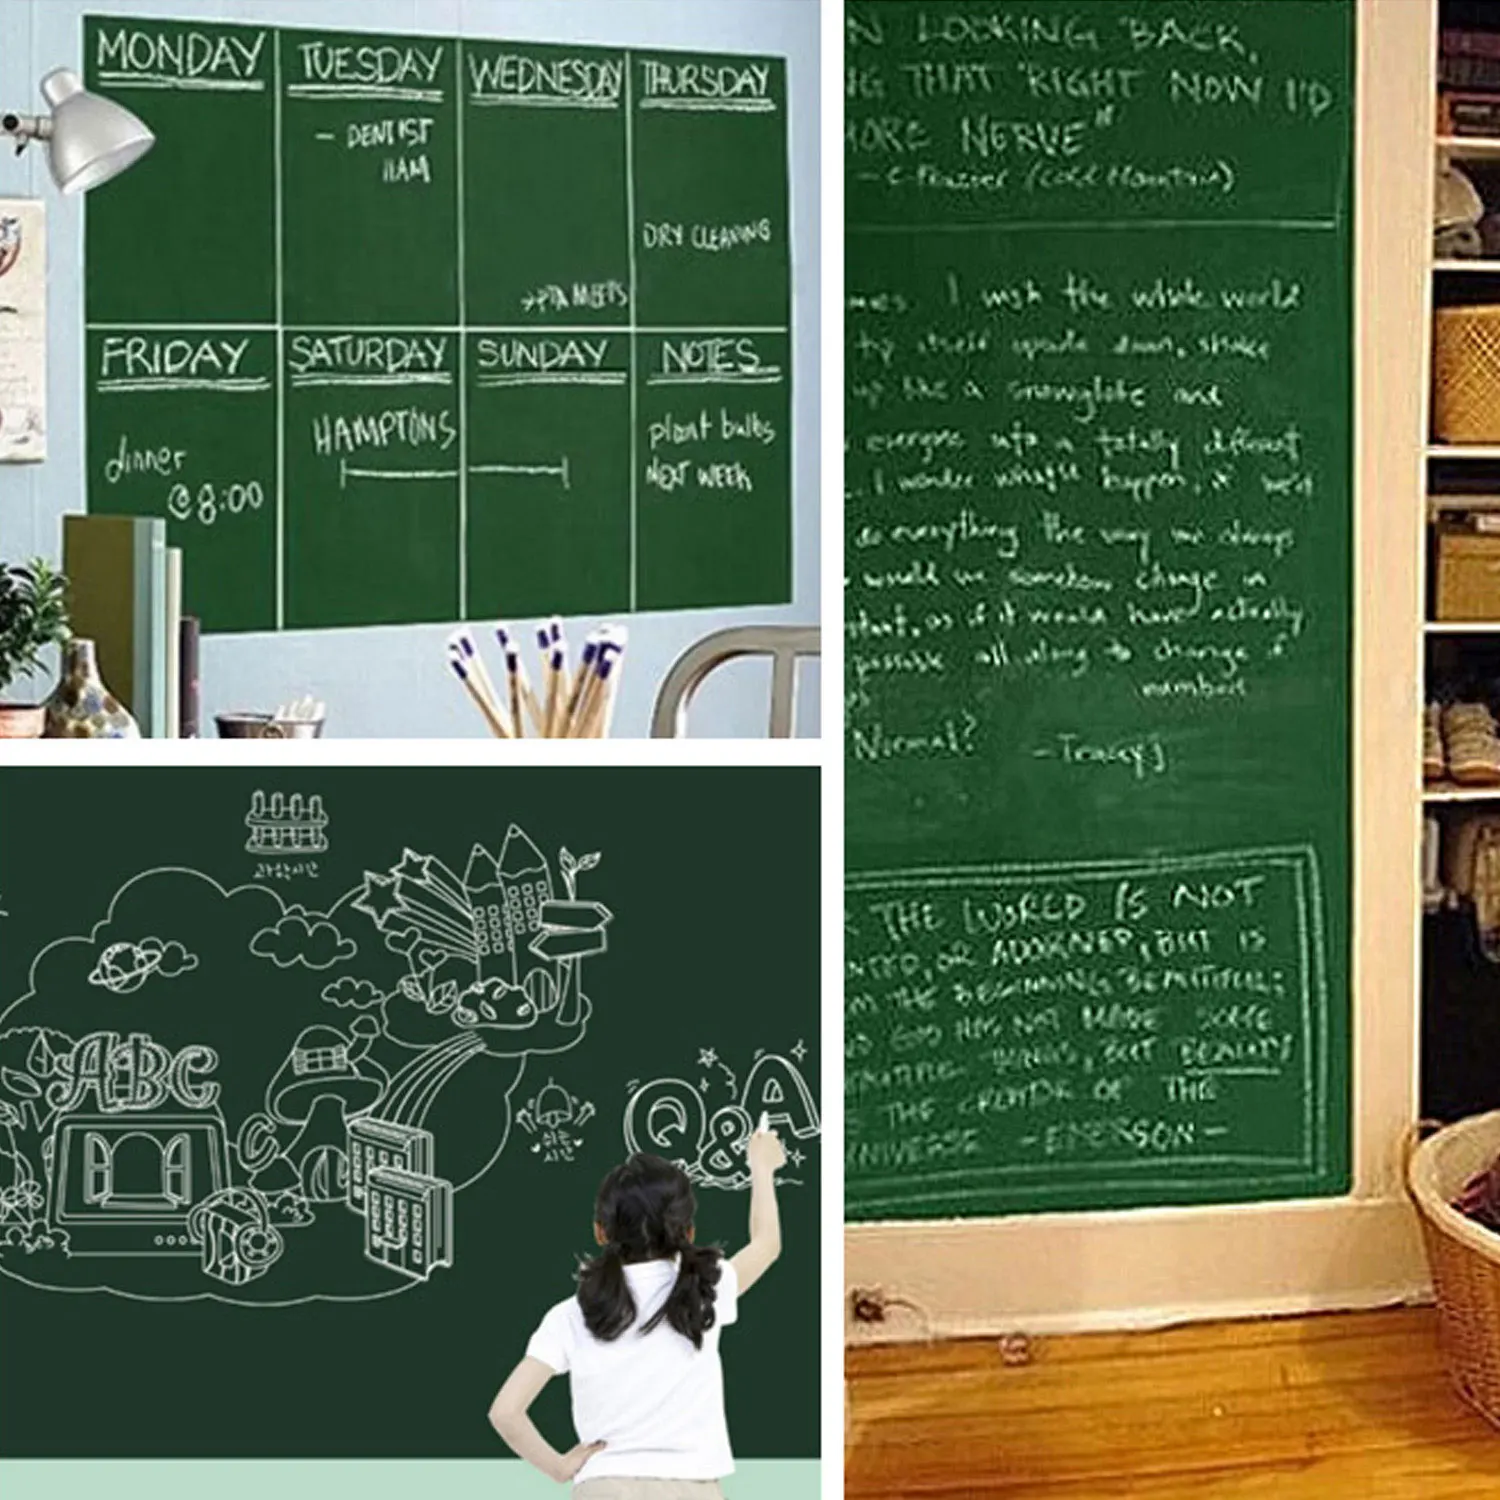 MONDAY
TUESDAY
WEDNESDAY
THURSDAY
- DENTIST
11AM
DRY CLEANING
→PTA MEETS
FRIDAY
SATURDAY
SUNDAY
NOTES
dinner
@8:00
HAMPTONS
plant bulbs
NEXT WEEK
N LOOKING BACK,
G THAT "RIGHT NOW I'D
MORE NERVE"
(Cold Mountain)
I wish the whole world
itself upside down, shake
up like a snowglobe and
everyone into a totally different
I wonder what'd happen, if we'd
do everything the way we always
would we somehow change in
that, as if it would have actually
possible all along to change if
numbers
Normal?
-Tracy J
THE WORLD IS NOT
OR ADORNED, BUT IS
THE BEGINNING BEAUTIFUL;
GOD HAS NOT MADE SOME
THINGS, BUT BEAUTY
THE CREATOR OF THE
UNIVERSE -EMERSON-
과학시간
ABC
C
쉬는
시간
Q&A